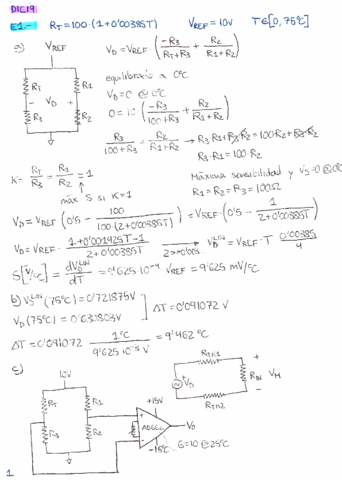 DIC19
E1.- RT=100·(1+0'00385T) VREF=10V T∈[0,75ºC]
a)
VREF
RT R1
- VD +
R3 R2
VD=VREF(-R3/(RT+R3) + R2/(R1+R2))
equilibrado a 0ºC
VD=0 @ 0ºC
0=10(-R3/(100+R3) + R2/(R1+R2))
R3/(100+R3) = R2/(R1+R2) → R3·R1+R3·R2=100·R2+R3·R2
R3·R1=100·R2
K= RT/R3 = R1/R2 = 1
máx S si K=1
Máxima sensibilidad y VD=0 @ 0ºC
R1=R2=R3=100Ω
VD=VREF(0'5 - 100/(100·(2+0'00385T)))=VREF·(0'5 - 1/(2+0'00385T))
VD=VREF· (1+0'001925T-1)/(2+0'00385T) VD^LIN=VREF·T 0'00385/4
S[V/ºC]= dVD^LIN/dT =9'625·10⁻⁴ VREF=9'625 mV/ºC
b) VD^LIN(75ºC)=0'721875V
VD(75ºC)=0'630803V
ΔT=0'091072 V
ΔT=0'091072 1ºC/(9'625·10⁻³ V) =9'462ºC
c)
10V
RT R1
R3 R2
+15V
+
-
-15V
VO
G=10 @ 25ºC
RTH1
+
VD
RIN VM
-
RTH2
1